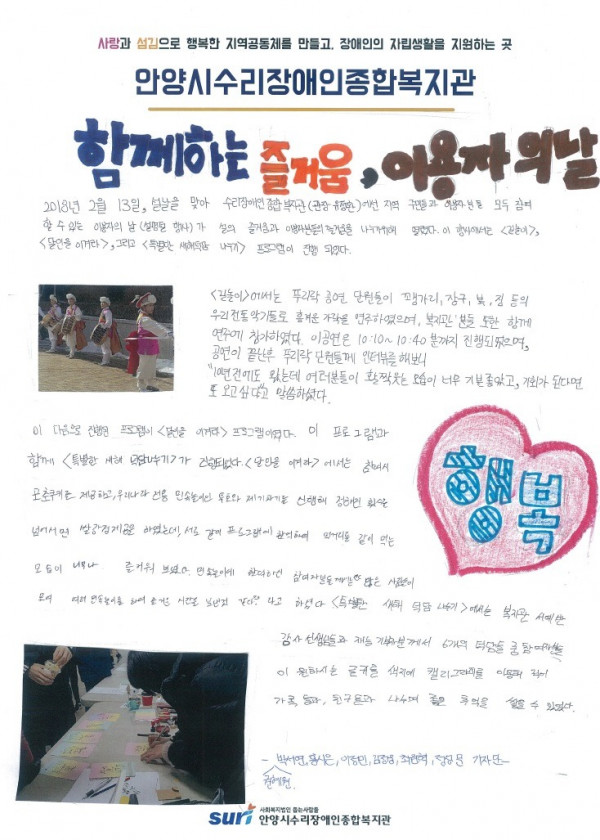 사랑과 섬김으로 행복한 지역공동체를 만들고, 장애인의 자립생활을 지원하는 곳
안양시수리장애인종합복지관
함께하는 즐거움, 이용자의날
2018년 2월 13일, 설날을 맞아 수리장애인종합복지관(관장 )에선 지역 주민들과 이용자분들 모두 참여
할 수 있는 이용자의 날 (설명절 행사)가 설의 즐거움과 이용자분들의 나누기위해 열렸다. 이 행사에서는 <길놀이>,
<달인을 이겨라>, 그리고 <특별한 새해덕담 나누기> 프로그램이 진행 되었다.
<길놀이>에서는 푸리락 공연 단원들이 꽹가리, 장구, 북, 징 등의
우리 전통악기들로 흥겨운 가락을 연주하였으며, 복지관 분들 또한 함께
연주에 참가하였다. 이공연은 10:10~10:40 분까지 진행되었으며,
공연이 끝난후 푸리락 단원들께 인터뷰를 해보니
"10년전에도 왔는데 여러분들이 활짝웃는 모습이 너무 기분좋았고, 기회가 된다면
또 오고싶다"고 말씀하셨다.
이 다음으로 진행된 프로그램이 <달인을 이겨라> 프로그램이였다. 이 프로그램과
함께 <특별한 새해 덕담나누기>가 진행되었다. <달인을 이겨라>에서는 참여시
제공하고, 우리나라 전통 민속놀이인 투호와 제기차기를 선택해 정해진
넘어서면 하였는데, 서로 같이 프로그램에 참여하여 같이 먹는
모습이 너무나 즐거워 보였다. 민속놀이에 참여하던 많은 사람들이
모여 여러 민속놀이를 하며 즐거운 시간을 보낸것 같다"고 하였다 <특별한 새해 덕담 나누기>에서는 복지관 서예반
강사 선생님들과 재능 기부자분께서 6개의 덕담을 준
이 원하시는 글귀를 색지에 캘리그라피를 이용해 적어
가족들과, 친구들과 나누며 좋은 추억을 쌓을 수 있었다.
행복
기자단
사회복지법인 돕는사람들
suri 안양시수리장애인종합복지관